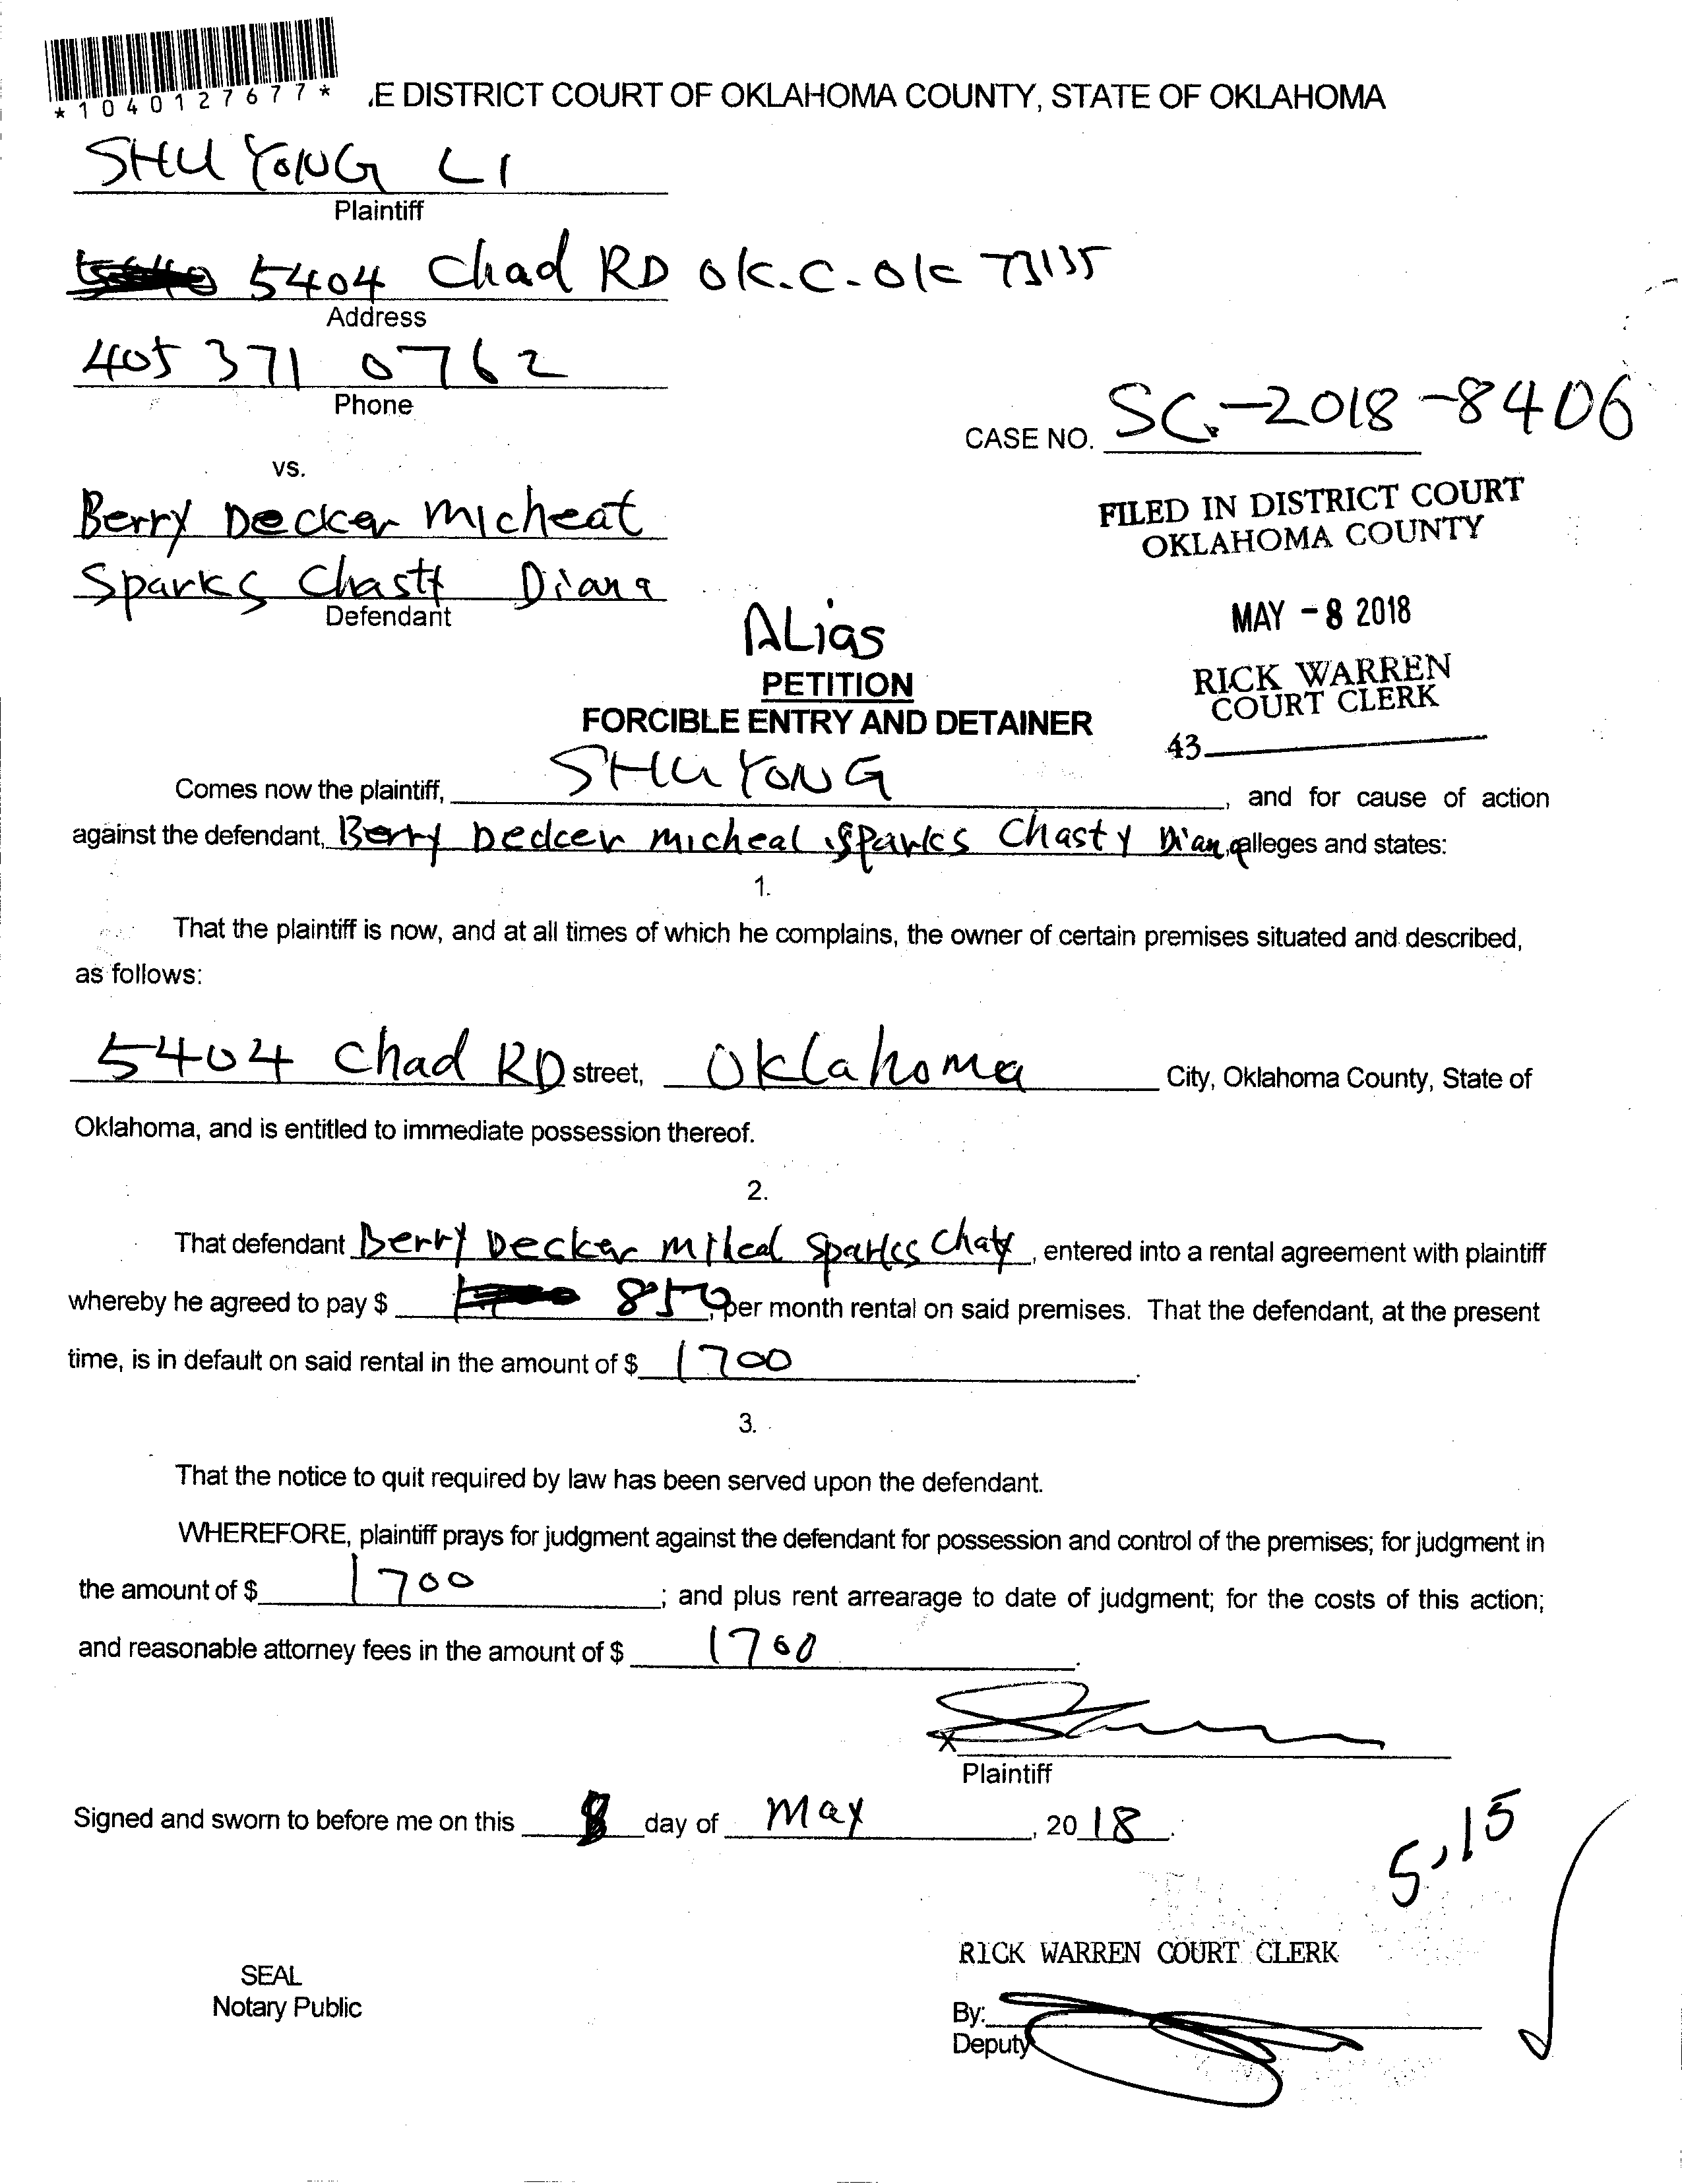 *1040127677*
.E DISTRICT COURT OF OKLAHOMA COUNTY, STATE OF OKLAHOMA
SHU YONG LI
Plaintiff
5404 Chad RD OK.C. OK 73135
Address
405 371 0762
Phone
CASE NO. SC-2018-8406
vs.
Berry Decker Micheal
Sparks Chasty Diana
Defendant
FILED IN DISTRICT COURT
OKLAHOMA COUNTY
MAY -8 2018
RICK WARREN
COURT CLERK
43
ALias
PETITION
FORCIBLE ENTRY AND DETAINER
Comes now the plaintiff, SHU YONG, and for cause of action
against the defendant, Berry Decker Micheal Sparks Chasty Diana alleges and states:
1.
That the plaintiff is now, and at all times of which he complains, the owner of certain premises situated and described,
as follows:
5404 Chad RD street, Oklahoma City, Oklahoma County, State of
Oklahoma, and is entitled to immediate possession thereof.
2.
That defendant Berry Decker Sparks, entered into a rental agreement with plaintiff
whereby he agreed to pay $ 850, per month rental on said premises. That the defendant, at the present
time, is in default on said rental in the amount of $ 1700.
3.
That the notice to quit required by law has been served upon the defendant.
WHEREFORE, plaintiff prays for judgment against the defendant for possession and control of the premises; for judgment in
the amount of $ 1700; and plus rent arrearage to date of judgment; for the costs of this action;
and reasonable attorney fees in the amount of $ 1700.
X
Plaintiff
Signed and sworn to before me on this 8 day of May, 2018.
5,15
RICK WARREN COURT CLERK
SEAL
Notary Public
By:
Deputy